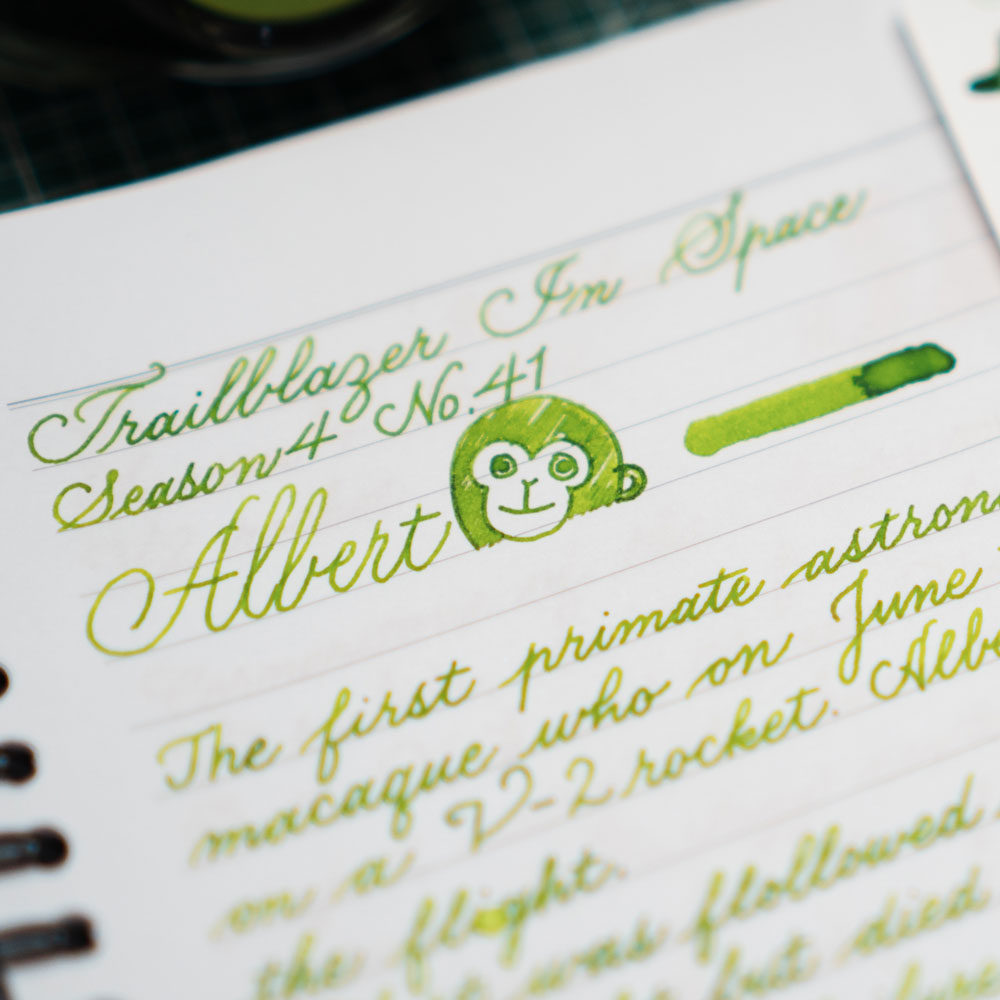 Trailblazer In Space
Season 4 No. 41
Albert
The first primate astron
macaque who on June
on a V-2 rocket. Albe
the flight.
was fllollowed
but died